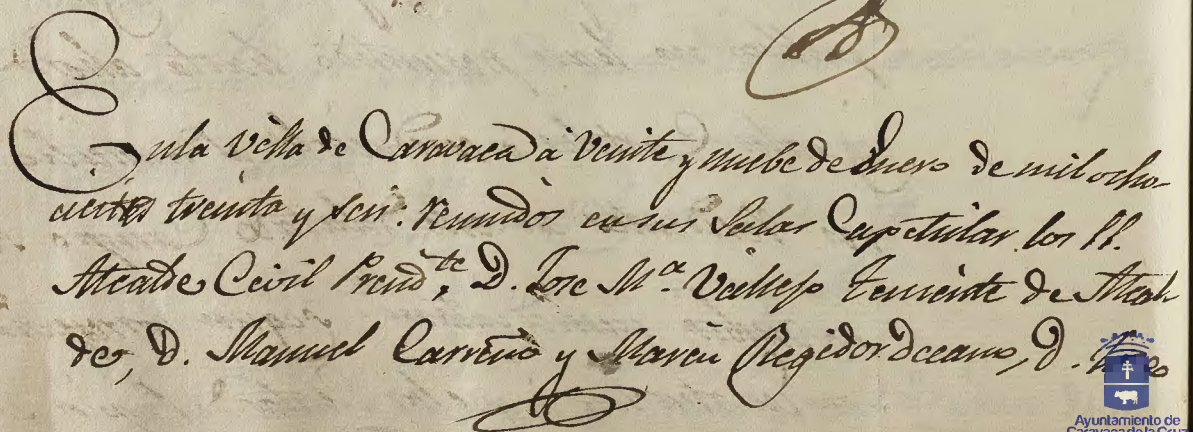 En la Villa de Caravaca à veinte y nuebe de Enero de mil ocho-
cientos treinta y seis: reunidos en sus Salas Capitular los SS.
Alcalde Civil Presid.te, D. Jose M.a Vallejo Teniente de Alcal
de, D. Manuel Carreño y Marin Regidor Decano, D.
Ayuntamiento de
Caravaca de la Cruz